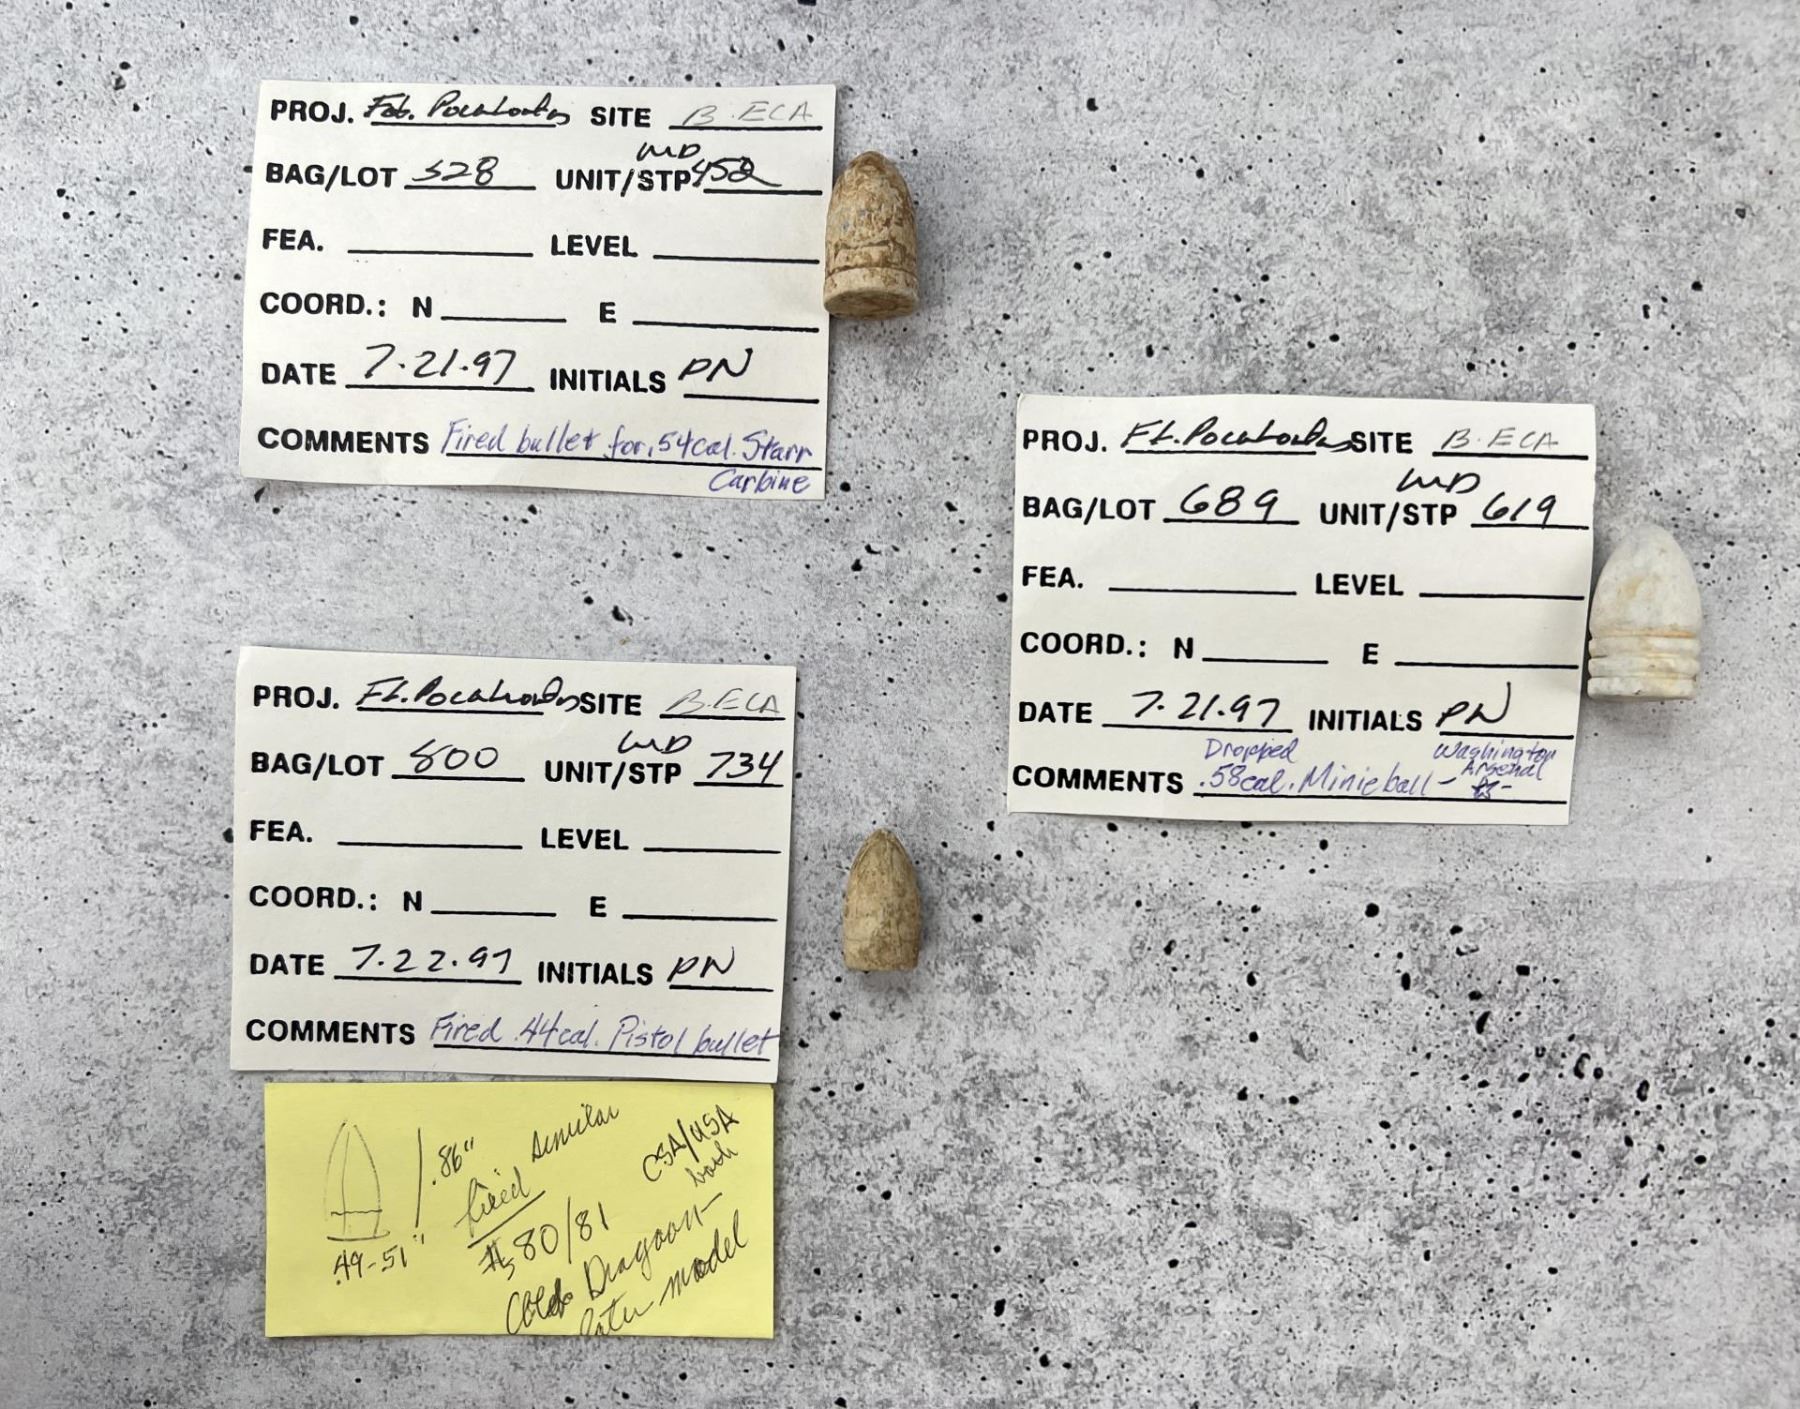 PROJ. Fot. Pocahontas SITE B. ECA
WD
BAG/LOT 528 UNIT/STP 452
FEA. LEVEL
COORD.: N E
DATE 7.21.97 INITIALS PN
COMMENTS Fired bullet for .54cal. Starr
Carbine
PROJ. Ft. Pocahontas SITE B. ECA
WD
BAG/LOT 689 UNIT/STP 619
FEA. LEVEL
COORD.: N E
DATE 7.21.97 INITIALS PN
Dropped Washington
Arsenal
COMMENTS .58cal. Minie ball - ☆ -
PROJ. Ft. Pocahontas SITE B. ECA
WD
BAG/LOT 800 UNIT/STP 734
FEA. LEVEL
COORD.: N E
DATE 7.22.97 INITIALS PN
COMMENTS Fired .44cal. Pistol bullet
.86"
.49-51"
fired similar
#s 80/81
CSA/USA
both
Colt Dragoon -
later model